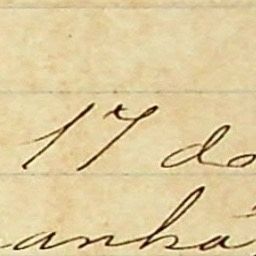 17 do
anhã